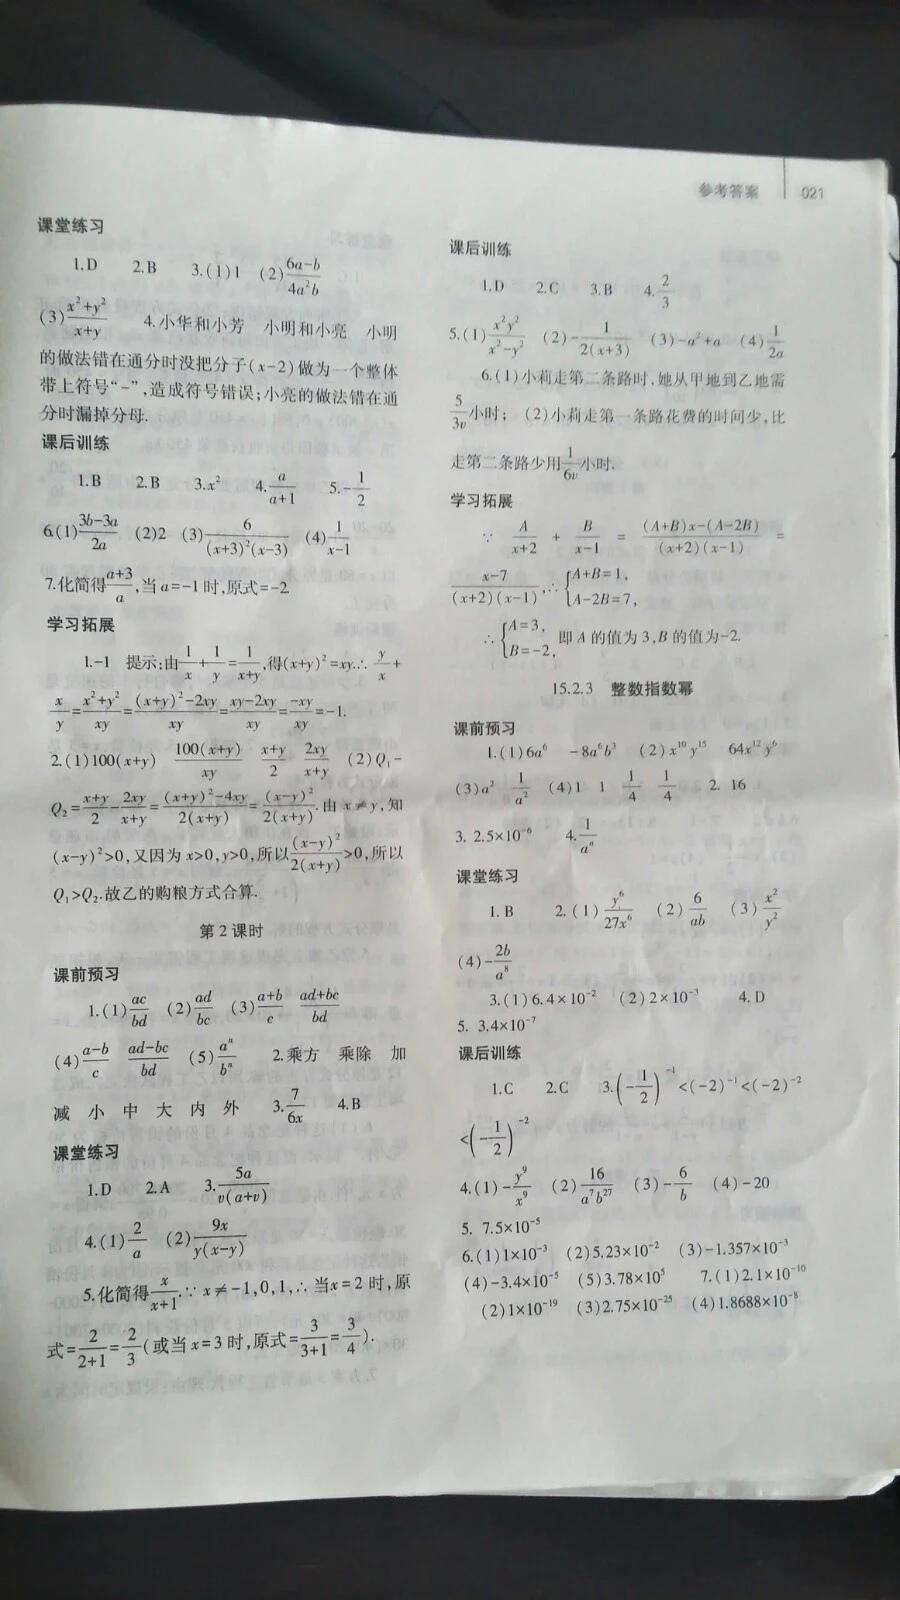 参考答案 021
课堂练习
1.D 2.B 3.(1)1 (2)(6a-b)/(4a²b)
(3)(x²+y²)/(x+y) 4.小华和小芳 小明和小亮 小明
的做法错在通分时没把分子(x-2)做为一个整体
带上符号“-”,造成符号错误;小亮的做法错在通
分时漏掉分母.
课后训练
1.B 2.B 3.x² 4.a/(a+1) 5.-1/2
6.(1)(3b-3a)/(2a) (2)2 (3)6/((x+3)²(x-3)) (4)1/(x-1)
7.化简得(a+3)/a,当a=-1时,原式=-2.
学习拓展
1.-1 提示:由1/x+1/y=1/(x+y),得(x+y)²=xy.∴y/x+
x/y=(x²+y²)/(xy)=((x+y)²-2xy)/(xy)=(xy-2xy)/(xy)=(-xy)/(xy)=-1.
2.(1)100(x+y) (100(x+y))/(xy) (x+y)/2 (2xy)/(x+y) (2)Q₁-
Q₂=(x+y)/2-(2xy)/(x+y)=((x+y)²-4xy)/(2(x+y))=((x-y)²)/(2(x+y)).由x≠y,知
(x-y)²>0,又因为x>0,y>0,所以((x-y)²)/(2(x+y))>0,所以
Q₁>Q₂.故乙的购粮方式合算.
第2课时
课前预习
1.(1)ac/bd (2)ad/bc (3)(a+b)/c (ad+bc)/bd
(4)(a-b)/c (ad-bc)/bd (5)aⁿ/bⁿ 2.乘方 乘除 加
减 小 中 大 内 外 3.7/(6x) 4.B
课堂练习
1.D 2.A 3.5a/(v(a+v))
4.(1)2/a (2)9x/(y(x-y))
5.化简得x/(x+1).∵x≠-1,0,1,∴当x=2时,原
式=2/(2+1)=2/3(或当x=3时,原式=3/(3+1)=3/4).
课后训练
1.D 2.C 3.B 4.2/3
5.(1)(x²y²)/(x²-y²) (2)-1/(2(x+3)) (3)-a²+a (4)1/(2a)
6.(1)小莉走第二条路时,她从甲地到乙地需
5/(3v)小时; (2)小莉走第一条路花费的时间少,比
走第二条路少用1/(6v)小时.
学习拓展
∵ A/(x+2) + B/(x-1) = ((A+B)x-(A-2B))/((x+2)(x-1)) =
(x-7)/((x+2)(x-1)),∴{A+B=1, A-2B=7,
∴{A=3, B=-2,即A的值为3,B的值为-2.
15.2.3 整数指数幂
课前预习
1.(1)6a⁶ -8a⁶b³ (2)x¹⁰y¹⁵ 64x¹²y⁶
(3)a² 1/a² (4)1 1 1/4 1/4 2. 16
3. 2.5×10⁻⁶ 4.1/aⁿ
课堂练习
1.B 2.(1)y⁶/(27x⁶) (2)6/(ab) (3)x²/y²
(4)-2b/a⁸
3.(1)6.4×10⁻² (2)2×10⁻³ 4.D
5. 3.4×10⁻⁷
课后训练
1.C 2.C 3.(-1/2)⁻¹<(-2)⁻¹<(-2)⁻²
<(-1/2)⁻²
4.(1)-y⁹/x⁹ (2)16/(a⁷b²⁷) (3)-6/b (4)-20
5. 7.5×10⁻⁵
6.(1)1×10⁻³ (2)5.23×10⁻² (3)-1.357×10⁻³
(4)-3.4×10⁻⁵ (5)3.78×10⁵ 7.(1)2.1×10⁻¹⁰
(2)1×10⁻¹⁹ (3)2.75×10⁻²⁵ (4)1.8688×10⁻⁸